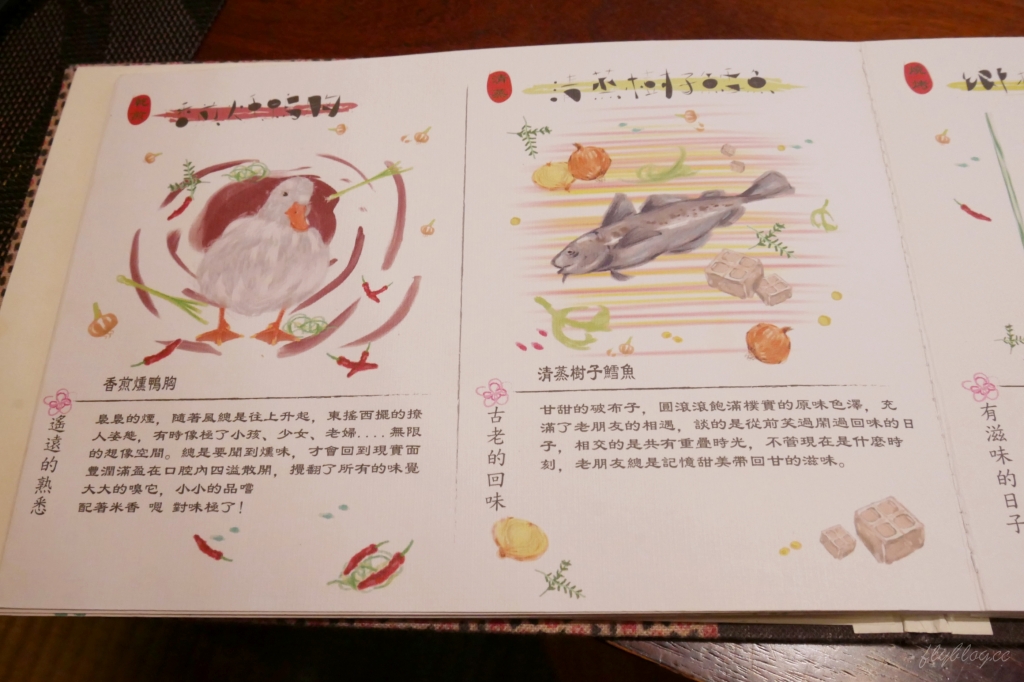 香煎燻鴨胸
遙遠的熟悉
裊裊的煙，隨著風總是往上升起，東搖西擺的撩
人姿態，有時像極了小孩、少女、老婦....無限
的想像空間。總是要聞到燻味，才會回到現實面
豐潤滿盈在口腔內四溢散開，攪翻了所有的味覺
大大的嗅它，小小的品嚐
配著米香 嗯 對味極了!
清蒸樹子鱈魚
清蒸樹子鱈魚
古老的回味
甘甜的破布子，圓滾滾飽滿樸實的原味色澤，充
滿了老朋友的相遇，談的是從前笑過鬧過回味的日
子，相交的是共有重疊時光，不管現在是什麼時
刻，老朋友總是記憶甜美帶回甘的滋味。
有滋味的日子
flyblog.cc